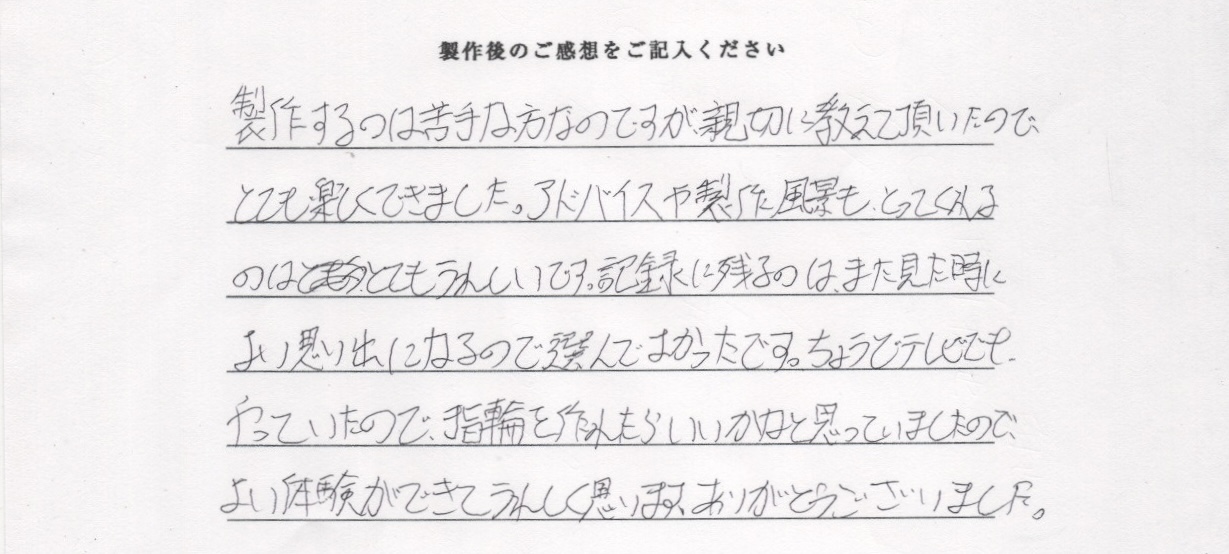 製作後のご感想をご記入ください
製作するのは苦手な方なのですが、親切に教えて頂いたので、
とても楽しくできました。アドバイスや製作風景も、とってくれる
のはとてもうれしいです。記録に残るのは、また見た時に
よい思い出になるので選んでよかったです。ちょうどテレビでも、
やっていたので、指輪を作れたらいいかなと思っていましたので、
よい体験ができてうれしく思います、ありがとうございました。